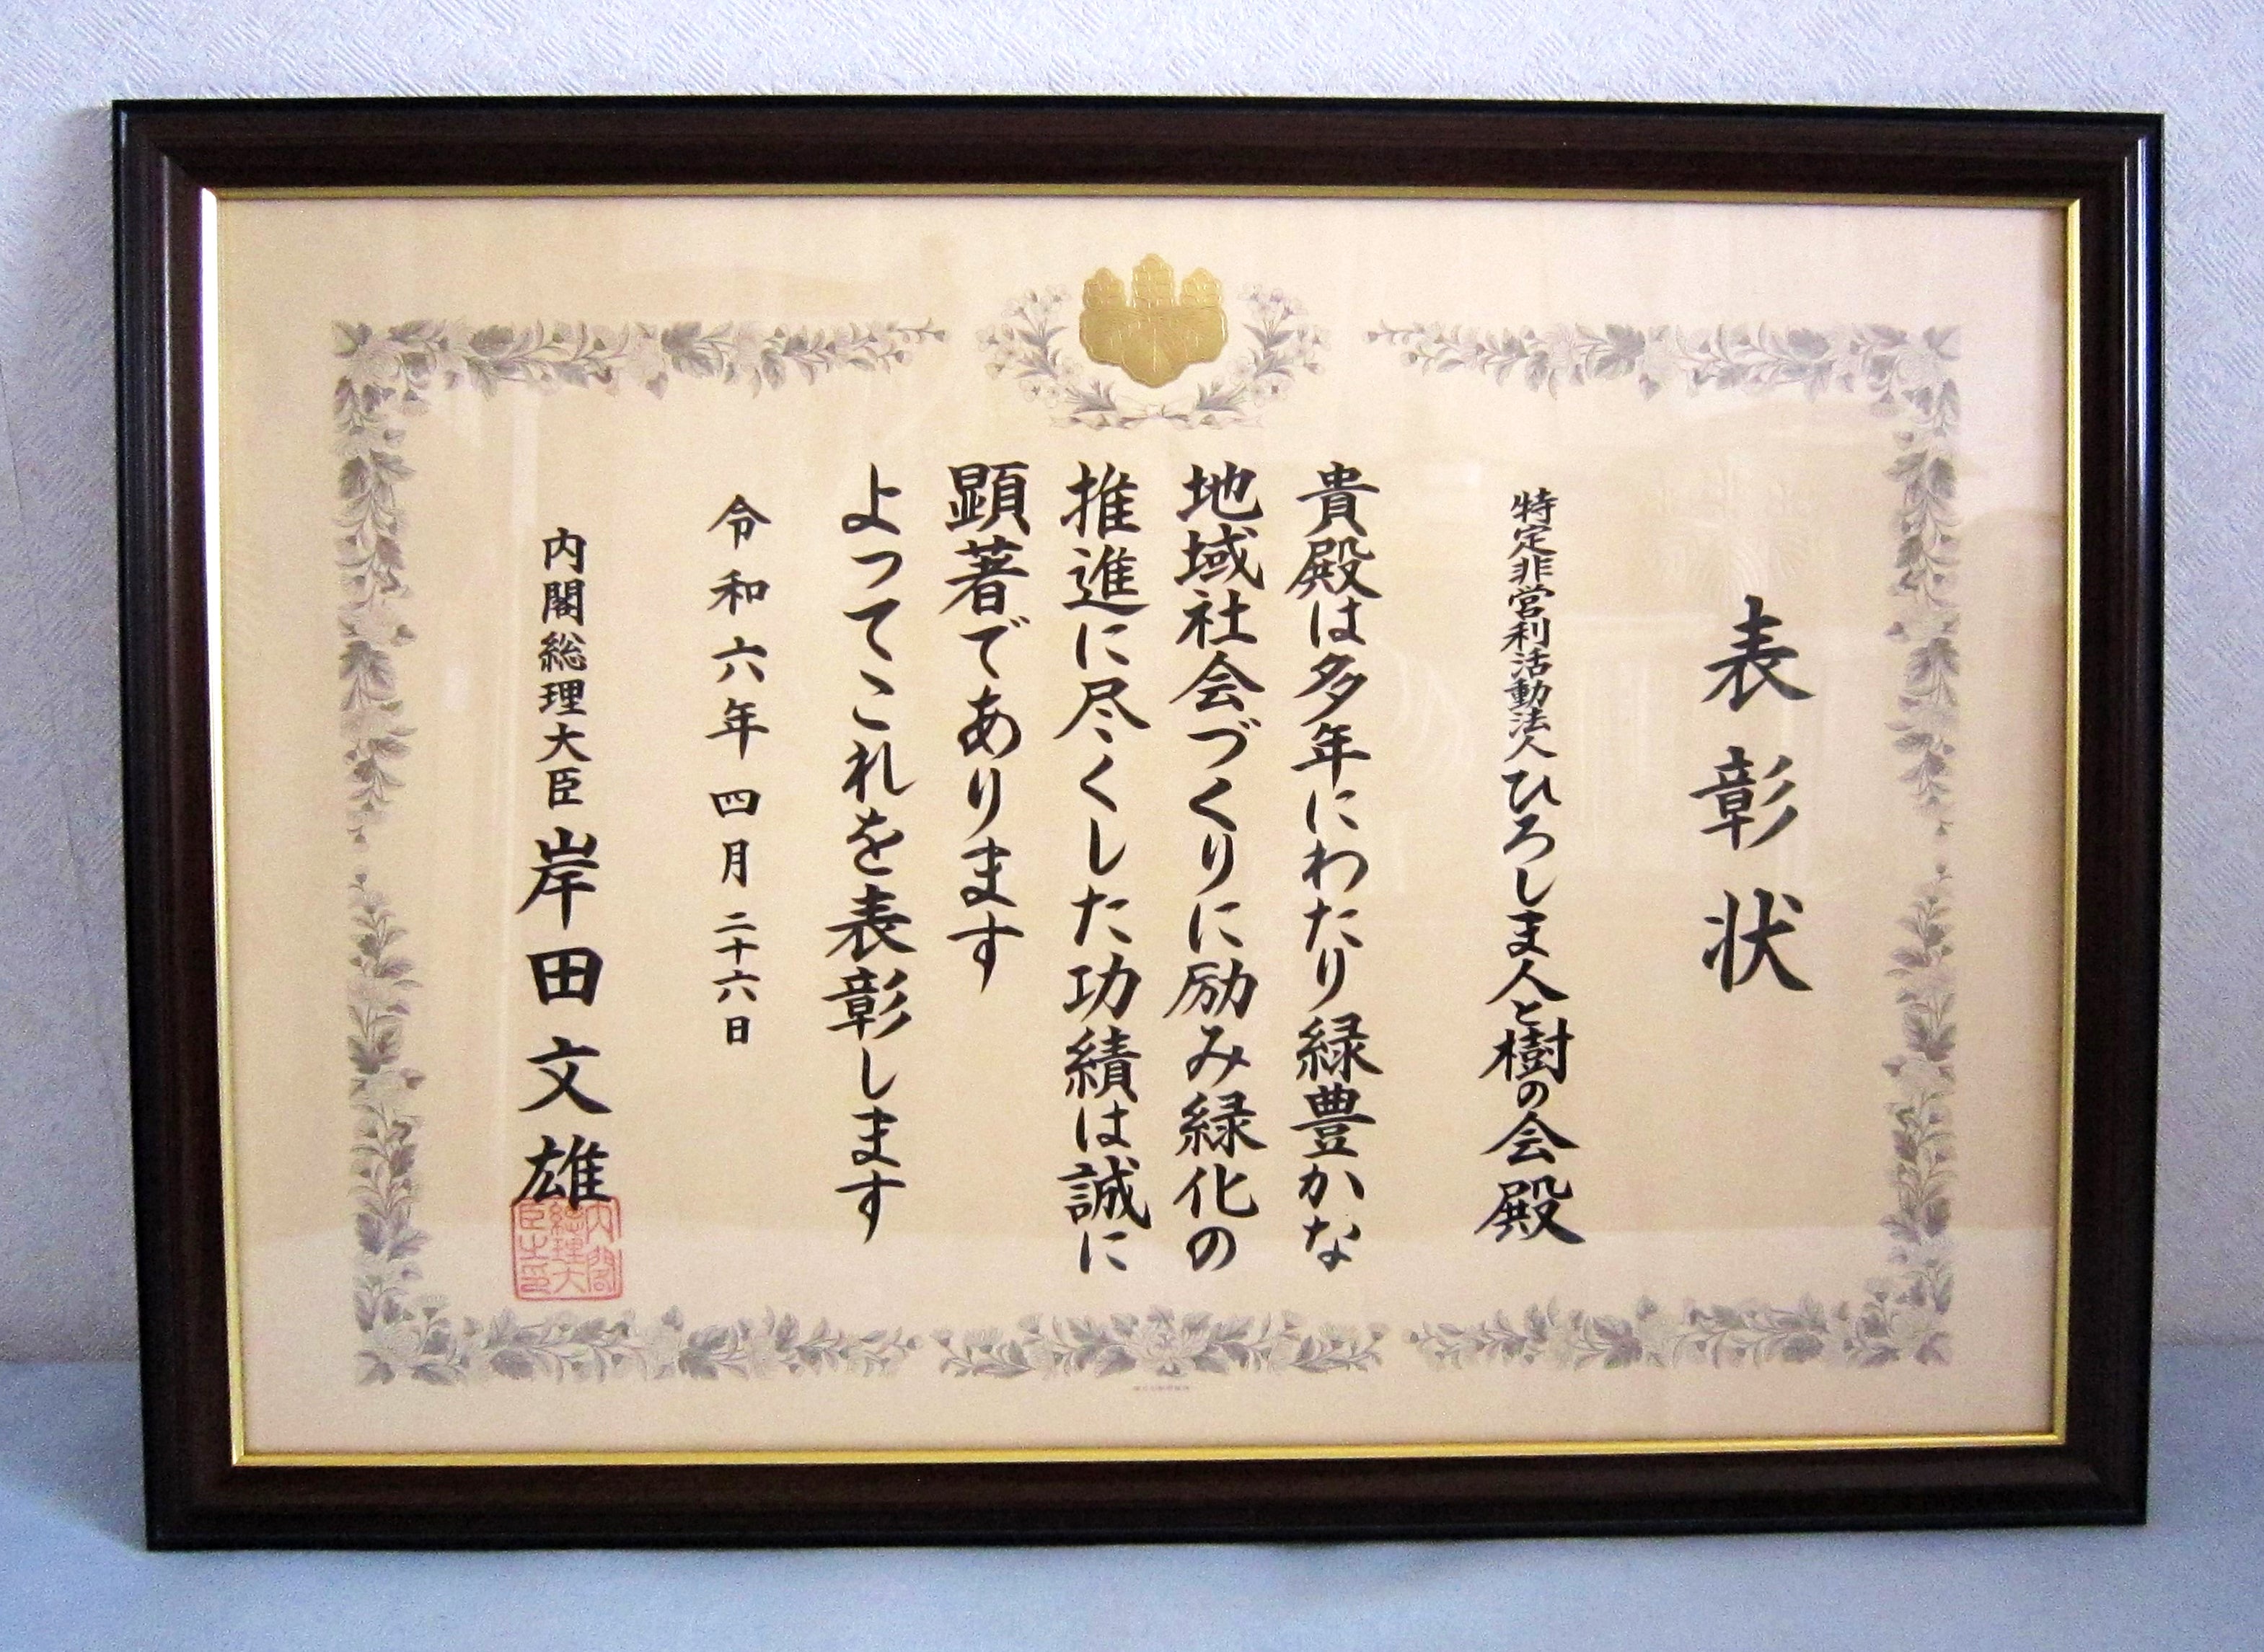 表彰状
特定非営利活動法人ひろしま人と樹の会殿
貴殿は多年にわたり緑豊かな
地域社会づくりに励み緑化の
推進に尽くした功績は誠に
顕著であります
よってこれを表彰します
令和六年四月二十六日
内閣総理大臣岸田文雄
内閣総理大臣之印